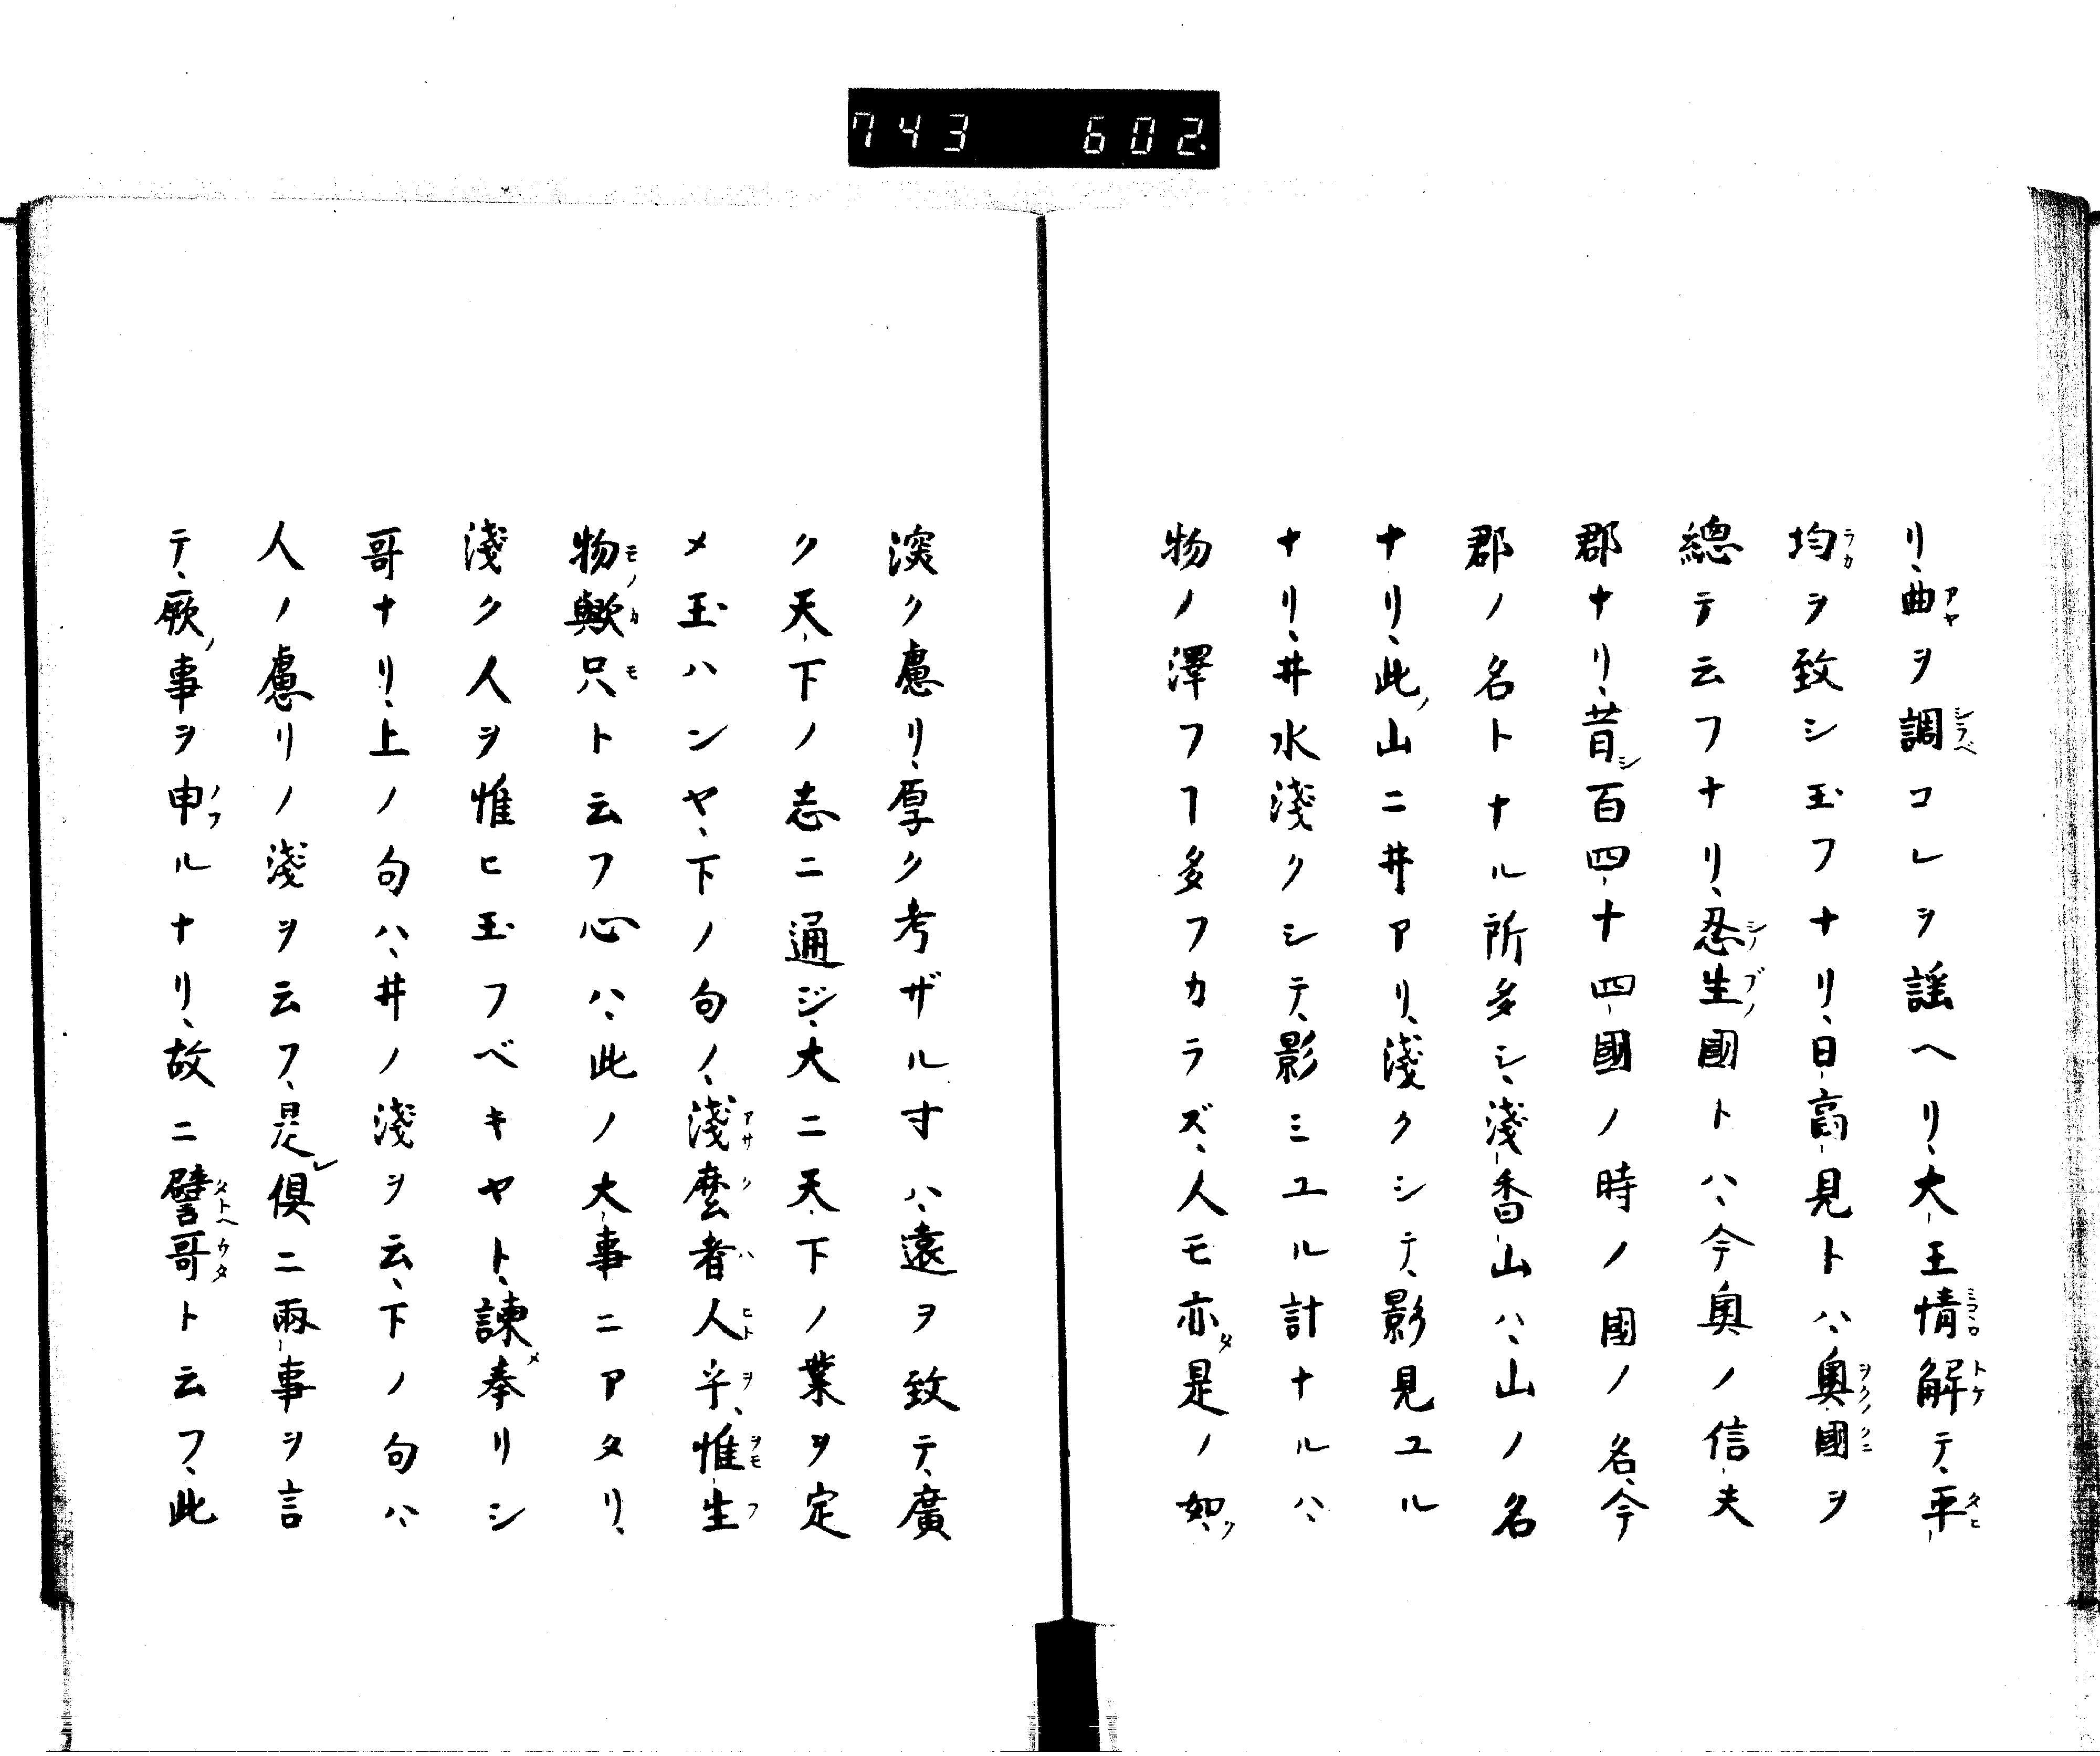 743 602.
リ、曲ヲ調コレヲ謡ヘリ、大王情解テ、平
均ヲ致シ玉フナリ、日高見トハ、奥國ヲ
總テ云フナリ、忍生國トハ、今奥ノ信夫
郡ナリ、昔百四十四國ノ時ノ國ノ名、今
郡ノ名トナル所多シ、淺香山ハ、山ノ名
ナリ、此山ニ井アリ、淺クシテ、影見ユル
ナリ、井水淺クシテ、影ミユル計ナルハ、
物ノ澤フヿ多フカラズ、人モ亦是ノ如
深ク慮リ、厚ク考ザル寸ハ、遠ヲ致テ、廣
ク天下ノ志ニ通ジ、大ニ天下ノ業ヲ定
メ玉ハンヤ、下ノ句ノ、淺麼者人乎、惟生
物歟只ト云フ心ハ、此ノ大事ニアタリ、
淺ク人ヲ惟ヒ玉フベキヤト、諫奉リシ
哥ナリ、上ノ句ハ、井ノ淺ヲ云、下ノ句ハ、
人ノ慮リノ淺ヲ云フ、是俱ニ兩事ヲ言
テ、厥事ヲ申ルナリ、故ニ譬哥ト云フ、此